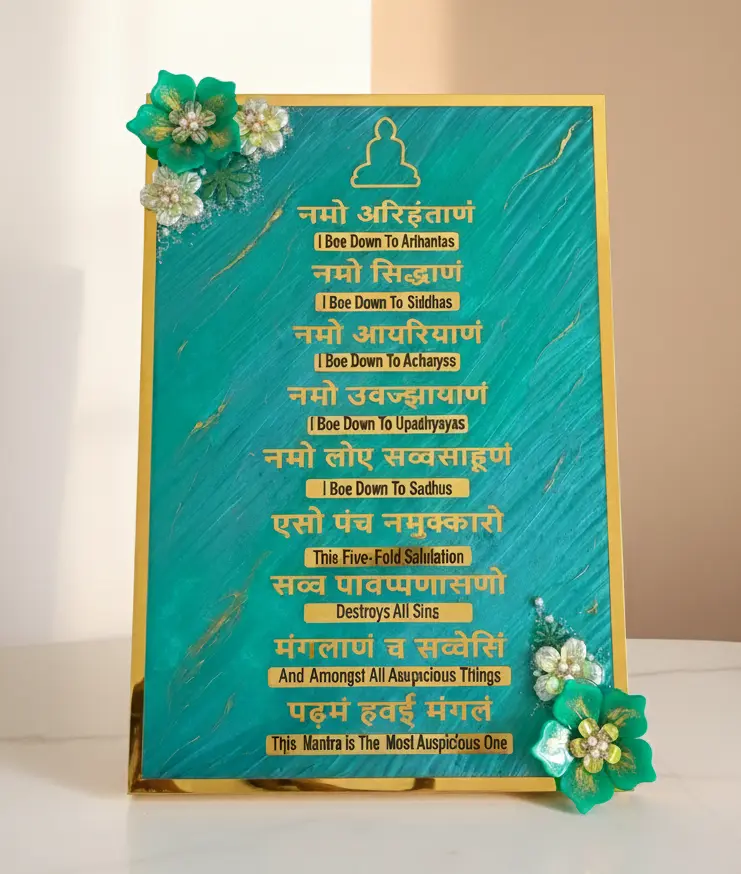 नमो अरिहंताणं
I Boe Down To Arihantas
नमो सिद्धाणं
I Boe Down To Siddhas
नमो आयरियाणं
I Boe Down To Acharyss
नमो उवज्झायाणं
I Boe Down To Upadhysyas
नमो लोए सव्वसाहूणं
I Boe Down To Sadhus
एसो पंच नमुक्कारो
This Five-Fold Salulation
सव्व पावप्पणासणो
Destroys All Sins
मंगलाणं च सव्वेसिं
And Amongst All Auspicious Things
पढ़मं हवई मंगलं
This Mantra is The Most Auspicious One